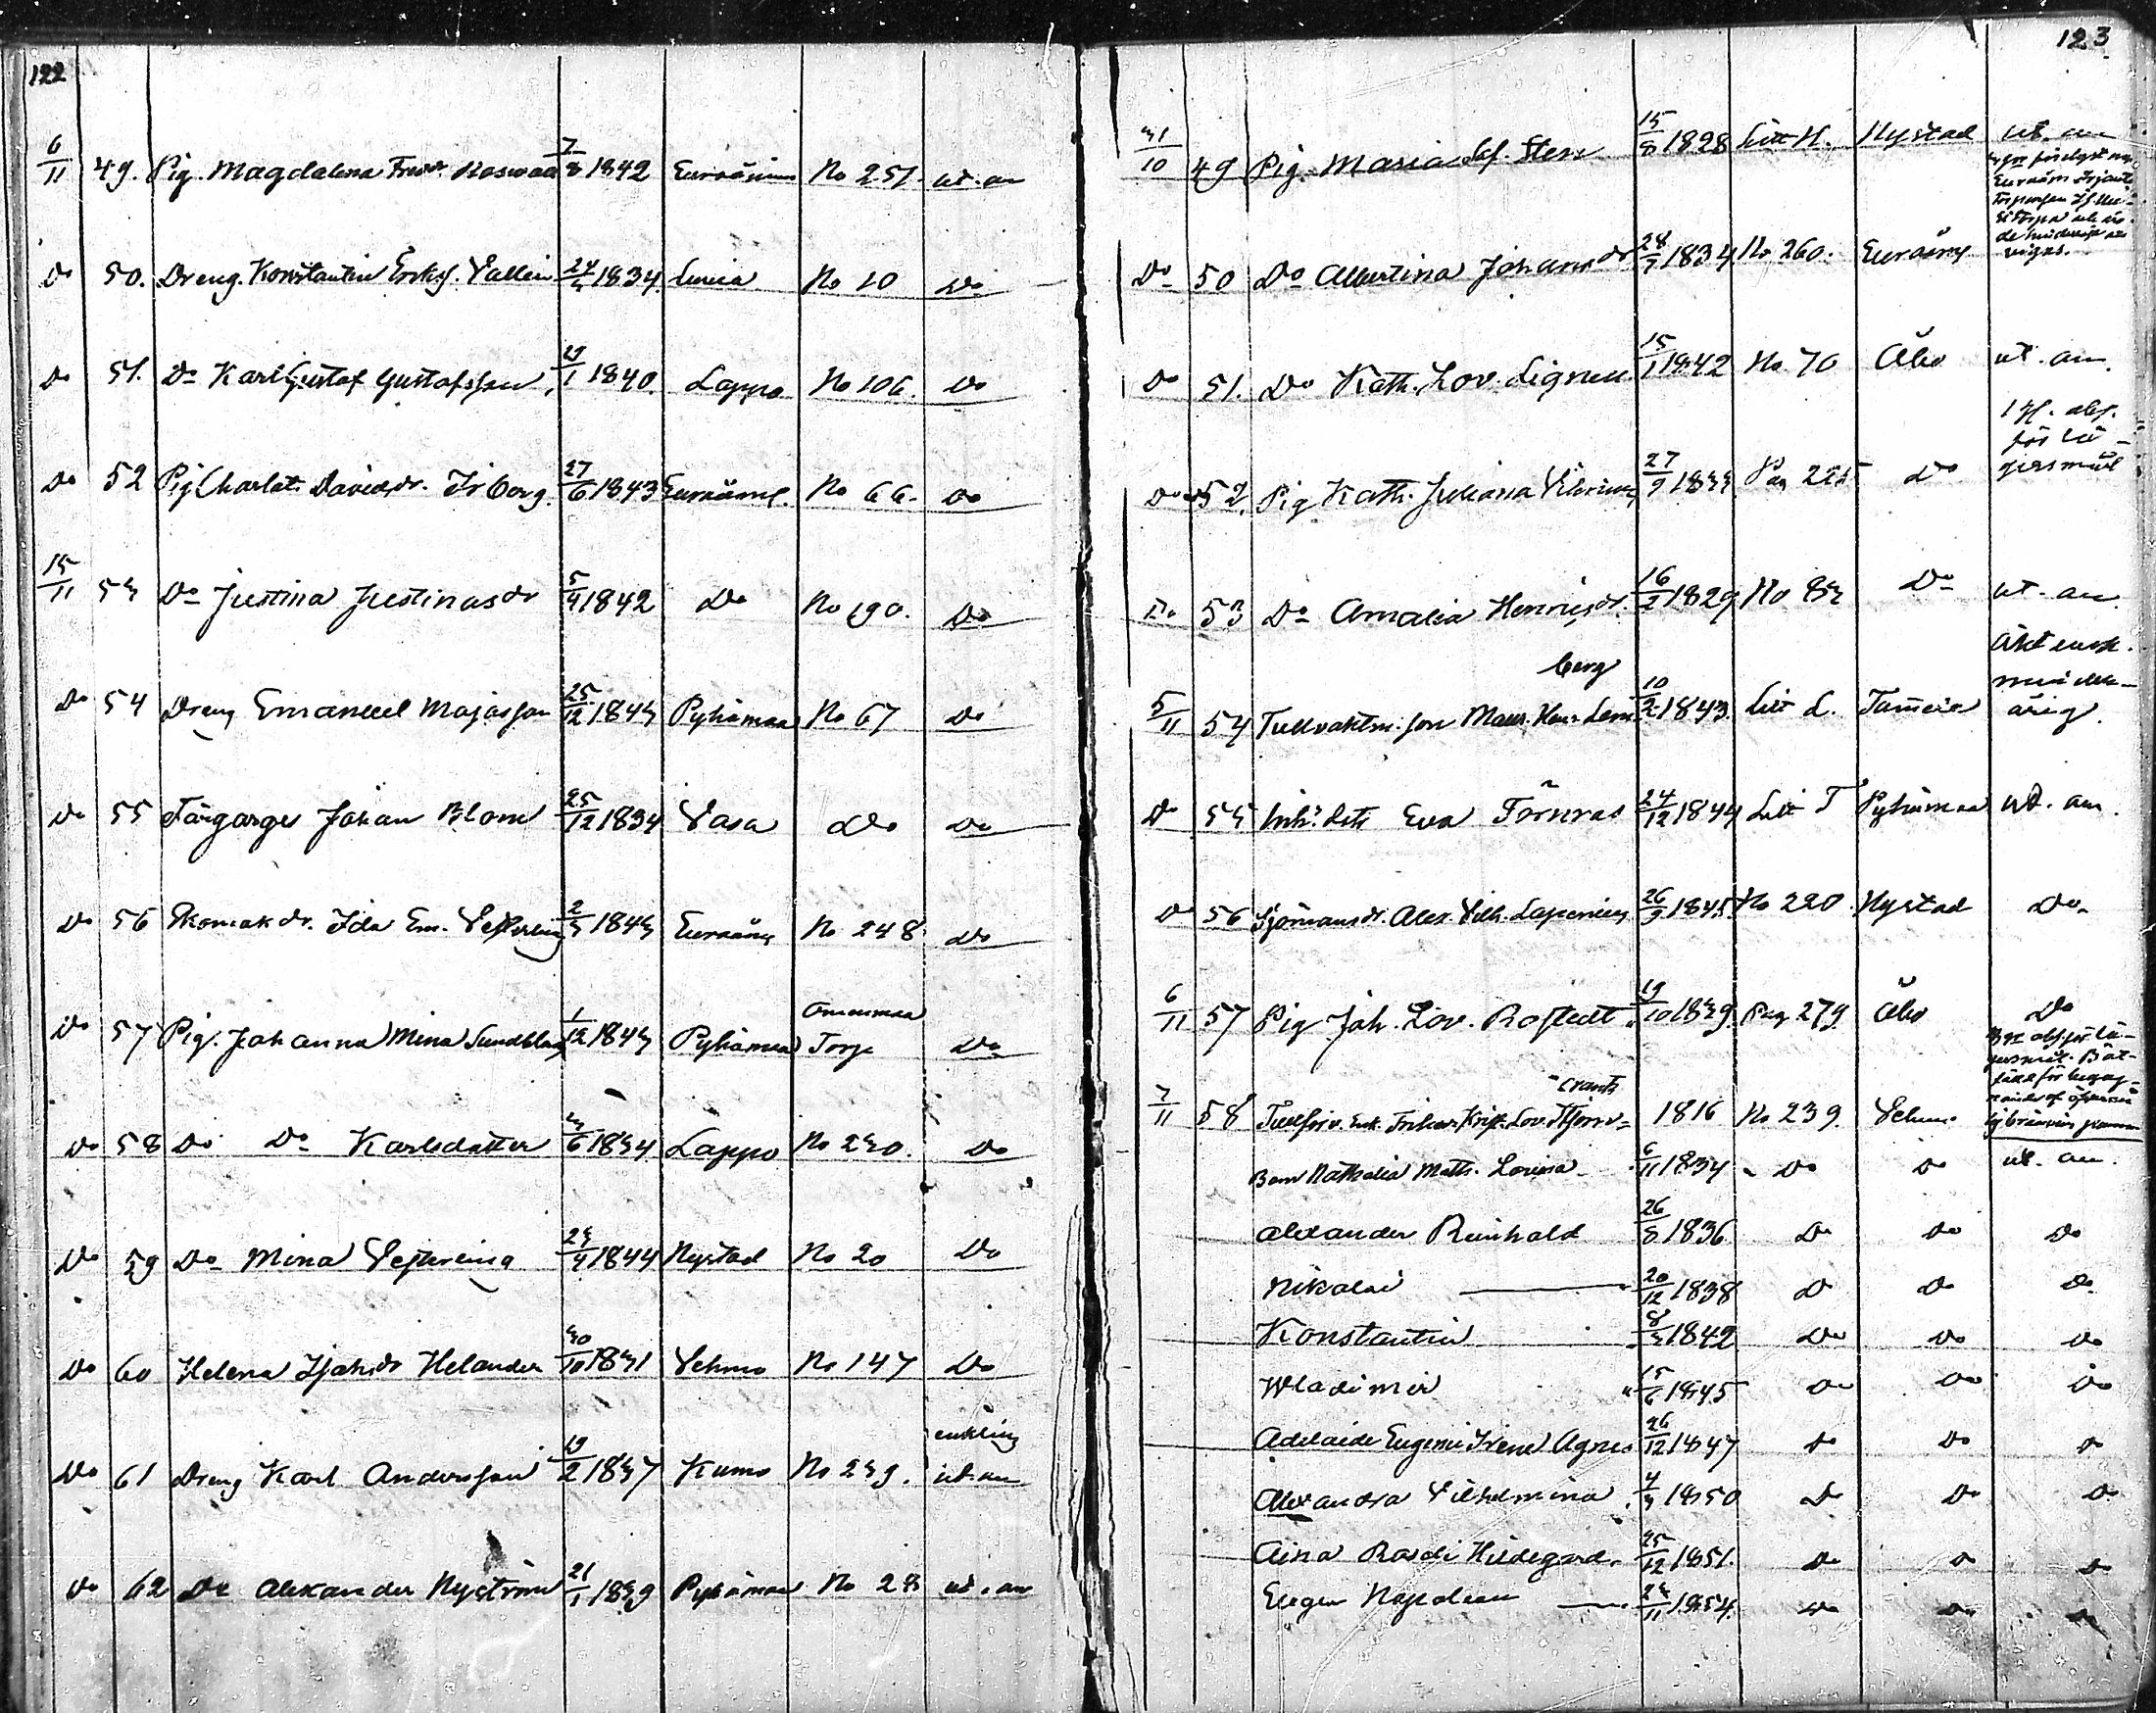 122
6/11 49. Pig. Magdalena Fredr. 7/8 1842 Euraåmin No 251 ut. an
Do 50. Dreng. Konstantin Eriks. Vallin 1834 Luvia No 10 Do
Do 51. Do Karl Gustaf Gustafsson, 1840. Lappo No 106. Do
Do 52 Pig Charlott. Davidsdr. Irberg. 27/6 1843 Euraåms. No 66. Do
15/11 53 Do Justina Justinasdr 5/9 1842 Do No 190. Do
Do 54 Dreng Emanuel Majasson 25/12 1843 Pyhämaa No 67 Do
Do 55 Färgarges Johan Blom 25/12 1834 Vasa Do Do
Do 56 Skomak dr. Ida Em. Vesterling 2/3 1843 Euraåm No 248 Do
Ommenmaa
Do 57 Pig. Johanna Mina Sundblad 1/12 1843 Pyhämaa Torp Do
Do 58 Do Do Karlsdotter 3/6 1834 Lappo No 230. Do
Do 59 Do Mina Vesterling 23/4 1844 Nystad No 20 Do
Do 60 Helena Isaksdr Helander 30/10 1831 Vehmo No 147 Do
enkling
Do 61 Dreng Karl Andersson 19/2 1837 Kumo No 239. ut. an
Do 62 Do Alexander Nyström 21/1 1839 Pyhämaa No 28 ut. an
123
31/10 49 Pig. Maria Sten 15/8 1828 Litt H. Nystad ut. an
Do 50 Do Albertina Johansdr 28/7 1834 No 260. Euraåms
Do 51. Do Kath. Lov. Lignell 15/1 1842 No 70 Åbo ut. an.
1 g. abs.
för lä-
gersmål
Do 52. Pig Kath. Juliana 27/9 1833 Pag 225 Do
Do 53 Do Amalia Henriksdr. 16/2 1829 No 83 Do ut. an.
Äkt ensk.
berg minder-
5/11 54 Tullvaktm. son Maur. Hen. Lem 10/2 1843. Litt L. årig.
Do 55 Inh. dotr Eva Törnroos 24/12 1844 Litt T Pyhämaa ut. an.
Do 56 Sjömansdr. Alex. Vilh. 26/9 1845 No 220. Nystad Do
6/11 57 Pig Joh. Lov. Rostedt 19/10 1839 Pag 279 Åbo Do
crantz
7/11 58 Tullförv. Enk. Kristi. Lov. Stjern- 1816 No 239. Vehmo
Barn Nathalia Math. Lovisa 6/11 1834 Do Do ut. an.
Alexander Reinhold 26/8 1836 Do Do Do
Nikolai 20/12 1838 Do Do Do
Konstantin 8/3 1842 Do Do Do
Wladimir 15/6 1845 Do Do Do
Adelaide Eugenie Irene Agnes 26/12 1847 Do Do Do
Alexandra Vilhelmina 4/3 1850 Do Do Do
Aina Hildegard. 25/12 1851 Do Do Do
Eugen Napoleon 23/11 1854 Do Do Do